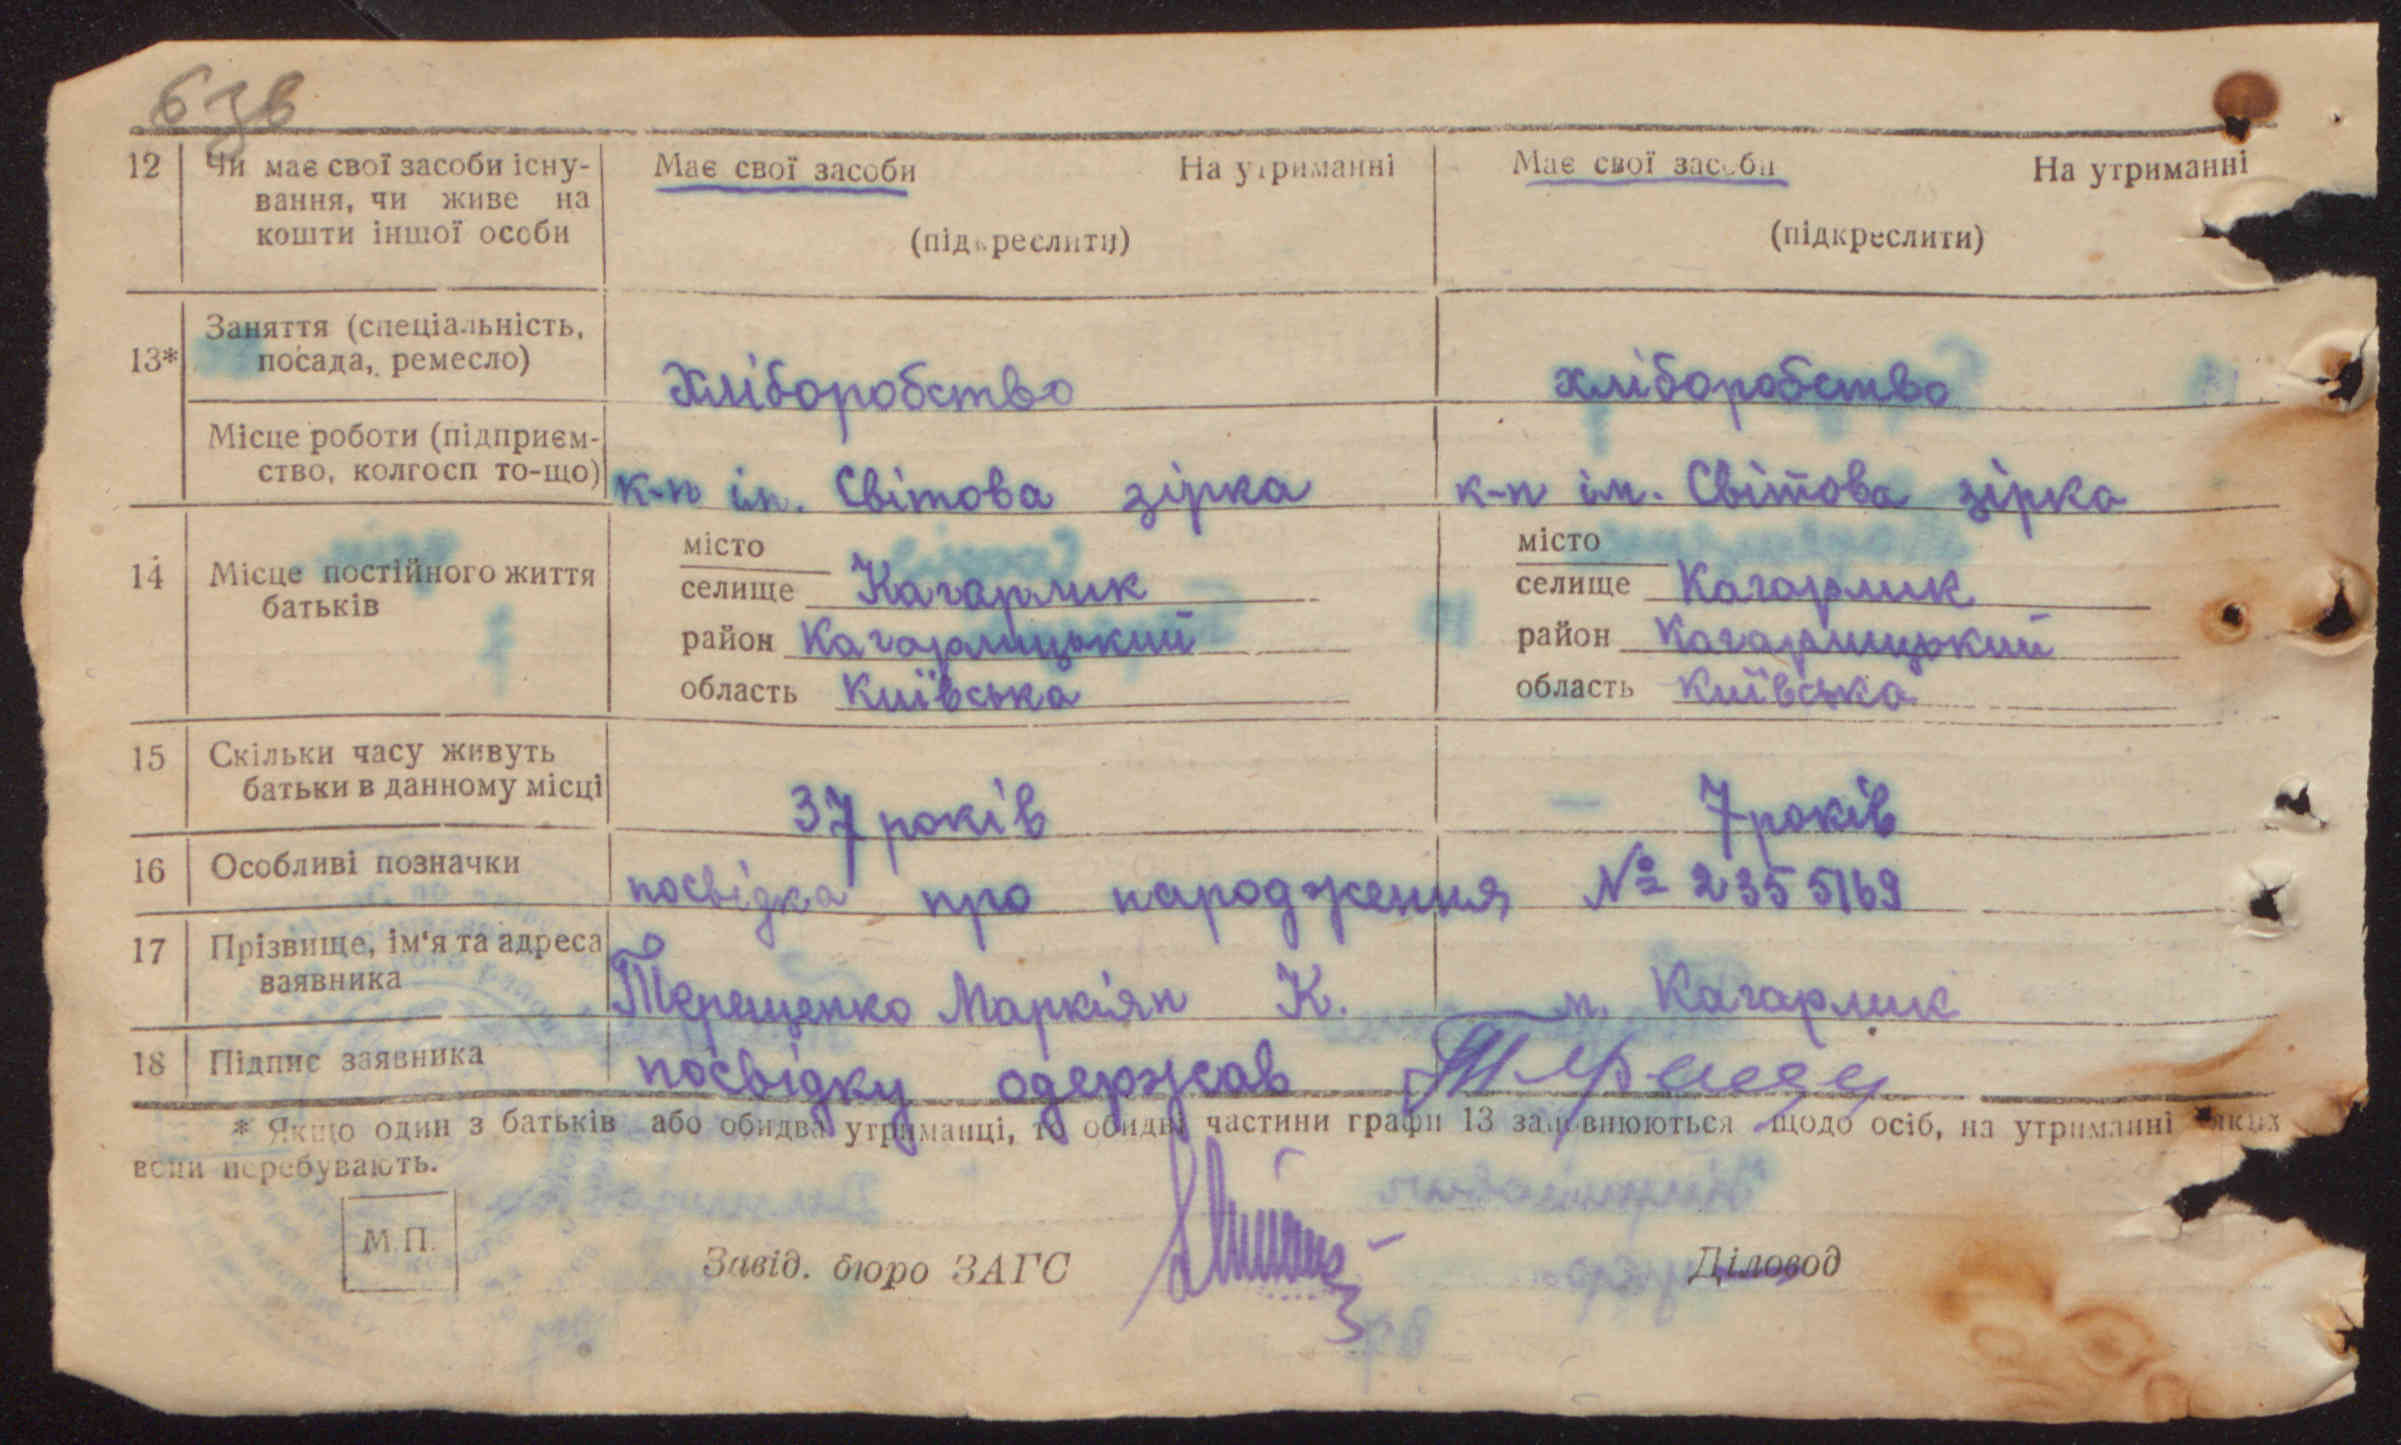 63в
12 Чи має свої засоби існу- Має свої засоби На утриманні Має свої засоби На утриманні
вання, чи живе на
кошти іншої особи (підкреслити) (підкреслити)
13* Заняття (спеціальність,
посада, ремесло) Хліборобство хліборобство
Місце роботи (підприєм-
ство, колгосп то-що) к-п ім. Світова зірка к-п ім. Світова зірка
місто місто
14 Місце постійного життя селище Кагарлик селище Кагарлик
батьків
район Кагарлицький район Кагарлицький
область Київська область Київська
15 Скільки часу живуть
батьки в данному місці 37 років 7 років
16 Особливі позначки посвідка про народження № 2355169
17 Прізвище, ім'я та адреса
заявника Терещенко Маркіян К. м. Кагарлик
18 Підпис заявника посвідку одержав
* Якщо один з батьків або обидва утриманці, то обидві частини графи 13 заповнюються щодо осіб, на утриманні яких
вони перебувають.
М.П.
Завід. бюро ЗАГС Діловод